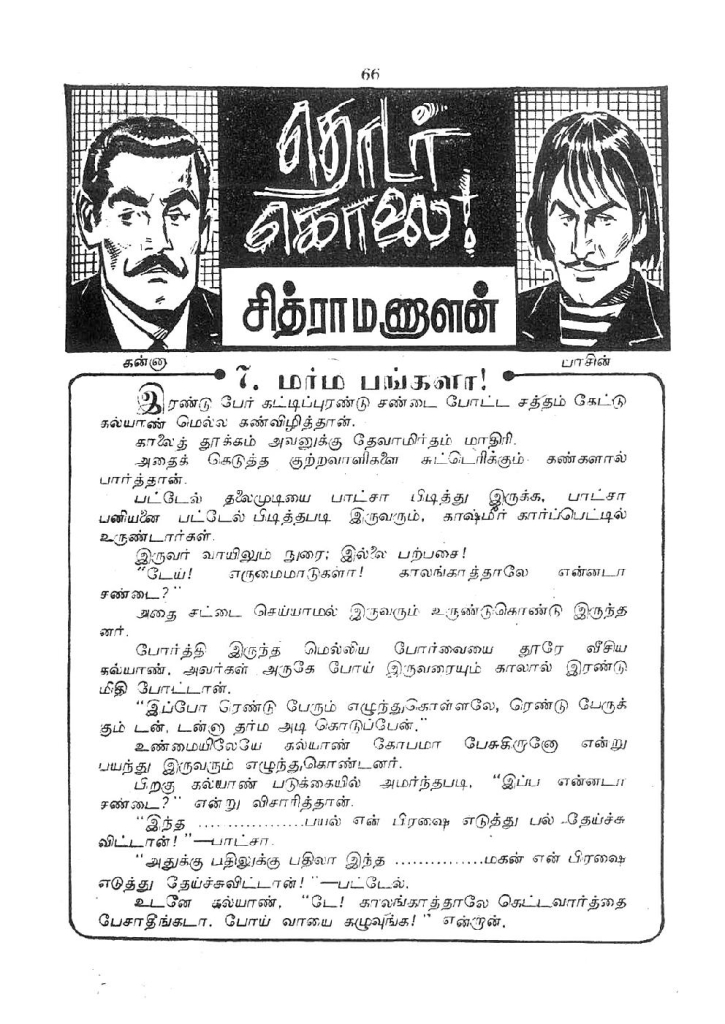 66
தொடர்
கொலை!
சித்ராமணாளன்
கன்னு
பாசின்
7. மர்ம பங்களா!
இரண்டு பேர் கட்டிப்புரண்டு சண்டை போட்ட சத்தம் கேட்டு
கல்யாண் மெல்ல கண்விழித்தான்.
காலைத் தூக்கம் அவனுக்கு தேவாமிர்தம் மாதிரி.
அதைக் கெடுத்த குற்றவாளிகளை சுட்டெரிக்கும் கண்களால்
பார்த்தான்.
பட்டேல் தலைமுடியை பாட்சா பிடித்து இருக்க, பாட்சா
பனியனை பட்டேல் பிடித்தபடி இருவரும், காஷ்மீர் கார்ப்பெட்டில்
உருண்டார்கள்.
இருவர் வாயிலும் நுரை; இல்லை பற்பசை!
"டேய்! எருமைமாடுகளா! காலங்காத்தாலே என்னடா
சண்டை?"
அதை சட்டை செய்யாமல் இருவரும் உருண்டுகொண்டு இருந்த
னர்.
போர்த்தி இருந்த மெல்லிய போர்வையை தூரே வீசிய
கல்யாண், அவர்கள் அருகே போய் இருவரையும் காலால் இரண்டு
மிதி போட்டான்.
"இப்போ ரெண்டு பேரும் எழுந்துகொள்ளலே, ரெண்டு பேருக்
கும் டன், டன்னு தர்ம அடி கொடுப்பேன்."
உண்மையிலேயே கல்யாண் கோபமா பேசுகிறானோ என்று
பயந்து இருவரும் எழுந்துகொண்டனர்.
பிறகு கல்யாண் படுக்கையில் அமர்ந்தபடி, "இப்ப என்னடா
சண்டை?" என்று விசாரித்தான்.
"இந்த ..................பயல் என் பிரஷை எடுத்து பல் தேய்ச்சு
விட்டான்!"—பாட்சா.
"அதுக்கு பதிலுக்கு பதிலா இந்த ...............மகன் என் பிரஷை
எடுத்து தேய்ச்சுவிட்டான்!"—பட்டேல்.
உடனே கல்யாண், "டே! காலங்காத்தாலே கெட்டவார்த்தை
பேசாதீங்கடா. போய் வாயை கழுவுங்க!" என்றான்.